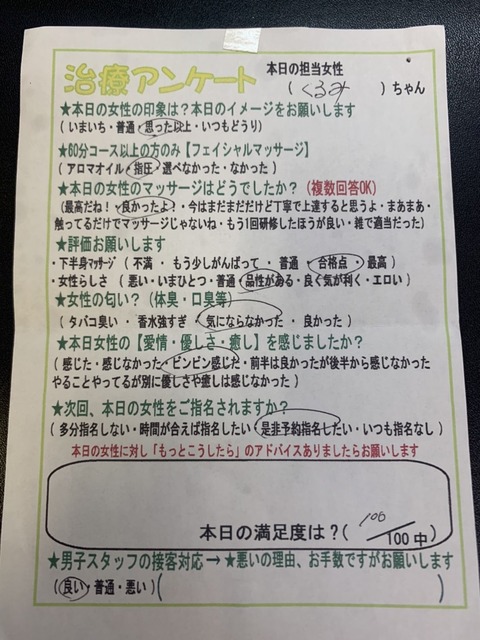 治療アンケート
本日の担当女性
( くるみ )ちゃん
★本日の女性の印象は?本日のイメージをお願いします
(いまいち・普通・思った以上・いつもどうり)
★60分コース以上の方のみ【フェイシャルマッサージ】
(アロマオイル・指圧・選べなかった・なかった)
★本日の女性のマッサージはどうでしたか?(複数回答OK)
(最高だね!・良かったよ!・今はまだまだだけど丁寧で上達すると思うよ・まあまあ・
触ってるだけでマッサージじゃないね・もう1回研修したほうが良い・雑で適当だった)
★評価お願いします
・下半身マッサージ(不満・もう少しがんばって・普通・合格点・最高)
・女性らしさ(悪い・いまひとつ・普通・品性がある・良く気が利く・エロい)
★女性の匂い?(体臭・口臭等)
(タバコ臭い・香水強すぎ・気にならなかった・良かった)
★本日女性の【愛情・優しさ・癒し】を感じましたか?
(感じた・感じなかった・ビンビン感じた・前半は良かったが後半から感じなかった
やることやってるが別に優しさや癒しは感じなかった)
★次回、本日の女性をご指名されますか?
(多分指名しない・時間が合えば指名したい・是非予約指名したい・いつも指名なし)
本日の女性に対し「もっとこうしたら」のアドバイスありましたらお願いします
本日の満足度は?( 100/100中)
★男子スタッフの接客対応→★悪いの理由、お手数ですがお願いします
(良い・普通・悪い)( )